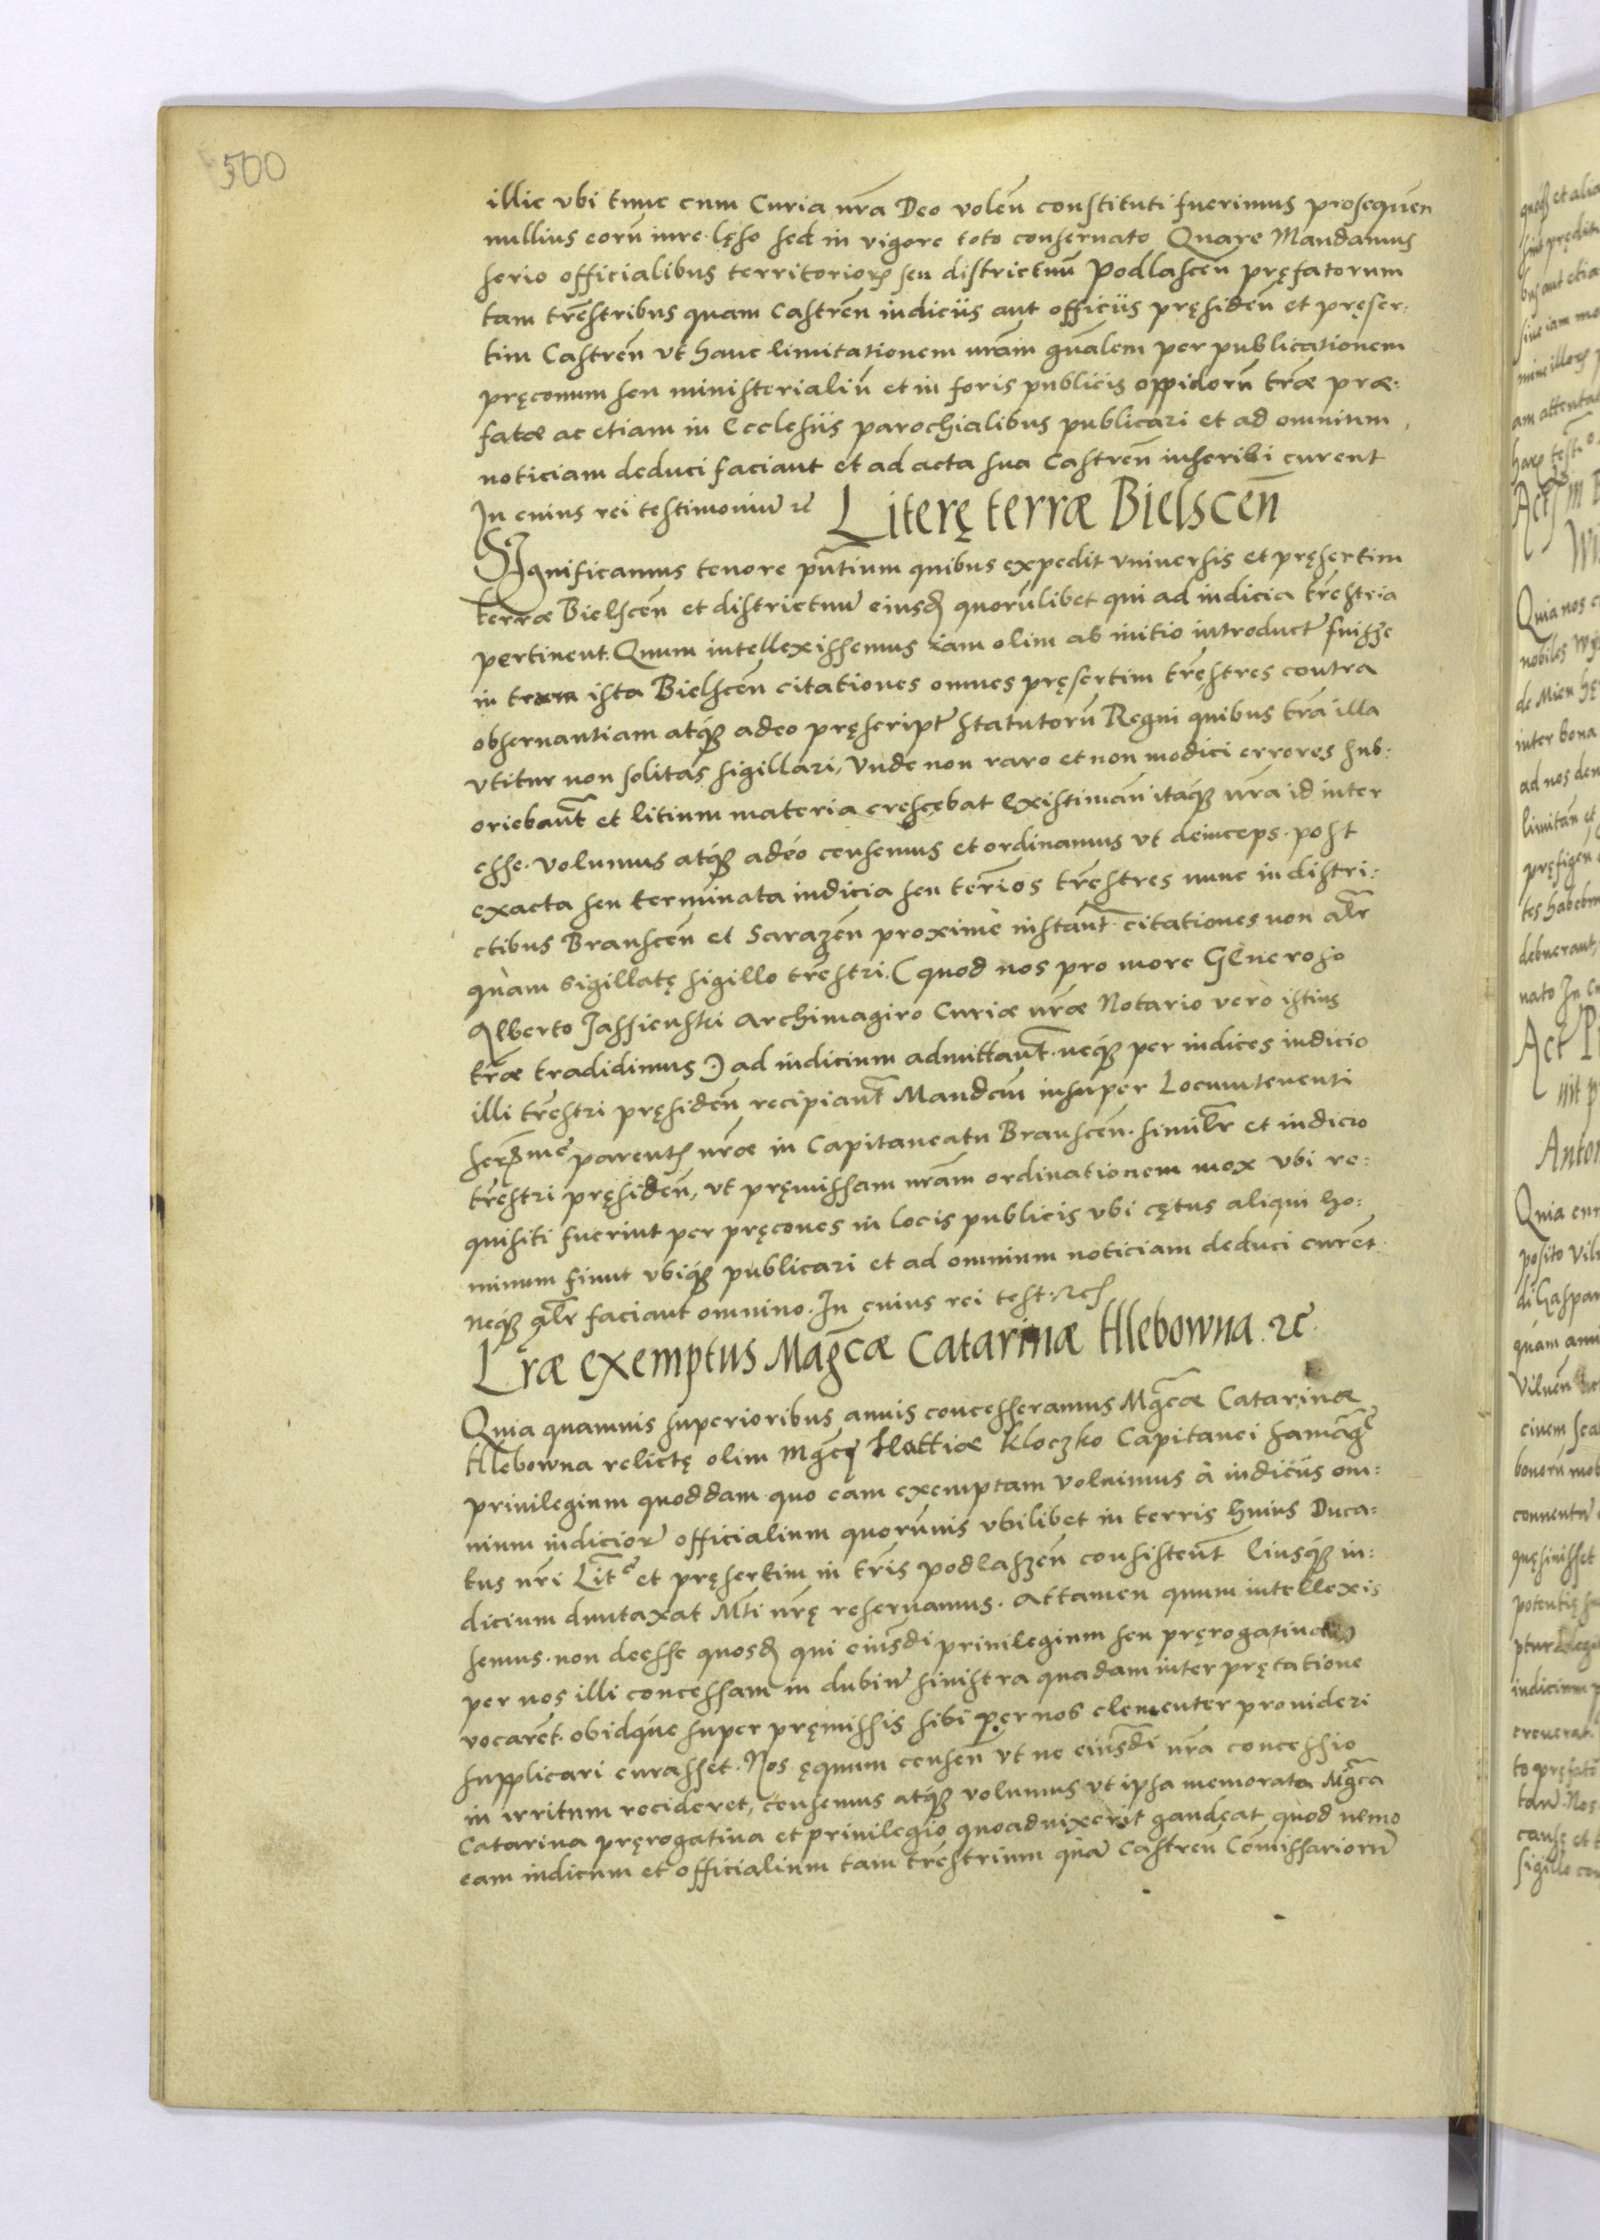 500
illic vbi tunc cum Curia nrã Deo voleñ constituti fuerimus prosequeñ
nullius eorũ iure lęso sed in vigore toto conseruato Quare Mandamus
serio officialibus territoriorꝝ seu districtuũ Podlasceñ pręfatorum
tam trẽstribus quam Castreñ iudiciis aut officiis pręsideñ et pręser:
tim Castreñ vt hanc limitationem nrãm gñalem per publicationem
pręconum seu ministerialiũ et in foris publicis oppidorũ trǣ præ:
fatæ ac etiam in Ecclesiis parochialibus publicari et ad omnium
noticiam deduci faciant et ad acta sua Castreñ inscribi curent
In cuius rei testimoniũ ꝛc̃ Literę terræ Bielsceñ
SIgnificamus tenore pñtium quibus expedit vniuersis et pręsertim
terræ Bielsceñ et districtuũ eiusd̃ quorũlibet qui ad iudicia trẽstria
pertinent. Quum intellexissemus iam olim ab initio introductũ fuisse
in terra ista Bielsceñ citationes omnes pręsertim trẽstres contra
obseruantiam atq́ꝫ adeo pręscriptũ statutorũ Regni quibus trã illa
vtitur non solitas sigillari, Vnde non raro et non modici errores sub:
oriebant̃ et litium materia crescebat Existimañ itaq́ꝫ nrã id inter
esse. volumus atq́ꝫ adeo censemus et ordinamus vt deinceps post
exacta seu terminata iudicia seu ter̃ios trẽstres nunc in distri:
ctibus Bransceñ et Sarazeñ proximè instant̃ citationes non alr̃
quàm sigillatę sigillo trẽstri. (quod nos pro more GEneroso
Alberto Jassienski Archimagiro Curiæ nrǣ Notario vero istius
trǣ tradidimus) ad iudicium admittant̃. neq́ꝫ per iudices iudicio
illi trẽstri pręsideñ recipiant̃ Mandam̃ insuper Locumtenenti
Ser̃ме parentis nrǣ in Capitaneatu Bransceñ. similr̃ et iudicio
trẽstri pręsideñ, vt pręmissam nrãm ordinationem mox vbi re:
quisiti fuerint per pręcones in locis publicis vbi cętus aliqui ho:
minum fiunt vbiq́ꝫ publicari et ad omnium noticiam deduci curẽt
neq́ꝫ alr̃ faciant omnino. In cuius rei test: ꝛc̃
Lr̃æ exemptus Mag̃cæ Catarinæ Hlebowna ꝛc̃.
Quia quamuis superioribus annis concesseramus Mg̃cæ Catarinæ
Hlebowna relictę olim Mg̃cę Mattiæ Kloczko Capitanei Samag̃
priuilegium quoddam quo eam exemptam voluimus à iudiciis om:
nium iudiciorũ officialium quorũuis vbilibet in terris huius Duca:
tus nr̃i Lit̃ę et pręsertim in tr̃is podlaszeñ consistent̃ Eiusq́ꝫ iu:
dicium duntaxat Mt̃i nr̃ę reseruamus. Attamen quum intellexis
semus. non deesse quosd̃ qui eiusd̃i priuilegium seu pręrogatiuam
per nos illi concessam in dubiũ sinistra quadam interprętatione
vocarẽt. obidq́ue super pręmissis sibi per nos clementer prouideri
supplicari curasset. Nos ęquum censeñ vt ne eiusd̃i nrã concessio
in irritum recideret, censemus atq́ꝫ volumus vt ipsa memorata Mg̃ca
Catarina pręrogatiua et priuilegio quoaduixerit gaudeat quod nemo
eam iudicum et officialium tam trẽstrium quã Castreñ Com̃issariorũ